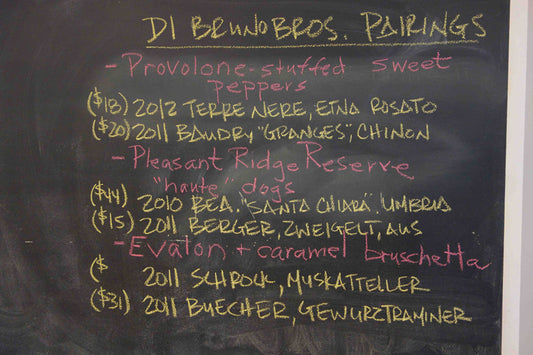 DI BRUNO BROS. PAIRINGS
- Provolone-stuffed sweet
peppers
($18) 2012 TERRE NERE, ETNA ROSATO
($20) 2011 BAUDRY "GRANGES", CHINON
- Pleasant Ridge Reserve
"haute" dogs
($44) 2010 BEA. "SANTA CHIARA", UMBRIA
($15) 2011 BERGER, ZWEIGELT, AUS
- Evalon + caramel bruschetta
($ 2011 SCHROCK, MUSKATTELLER
($31) 2011 BUECHER, GEWURZTRAMINER